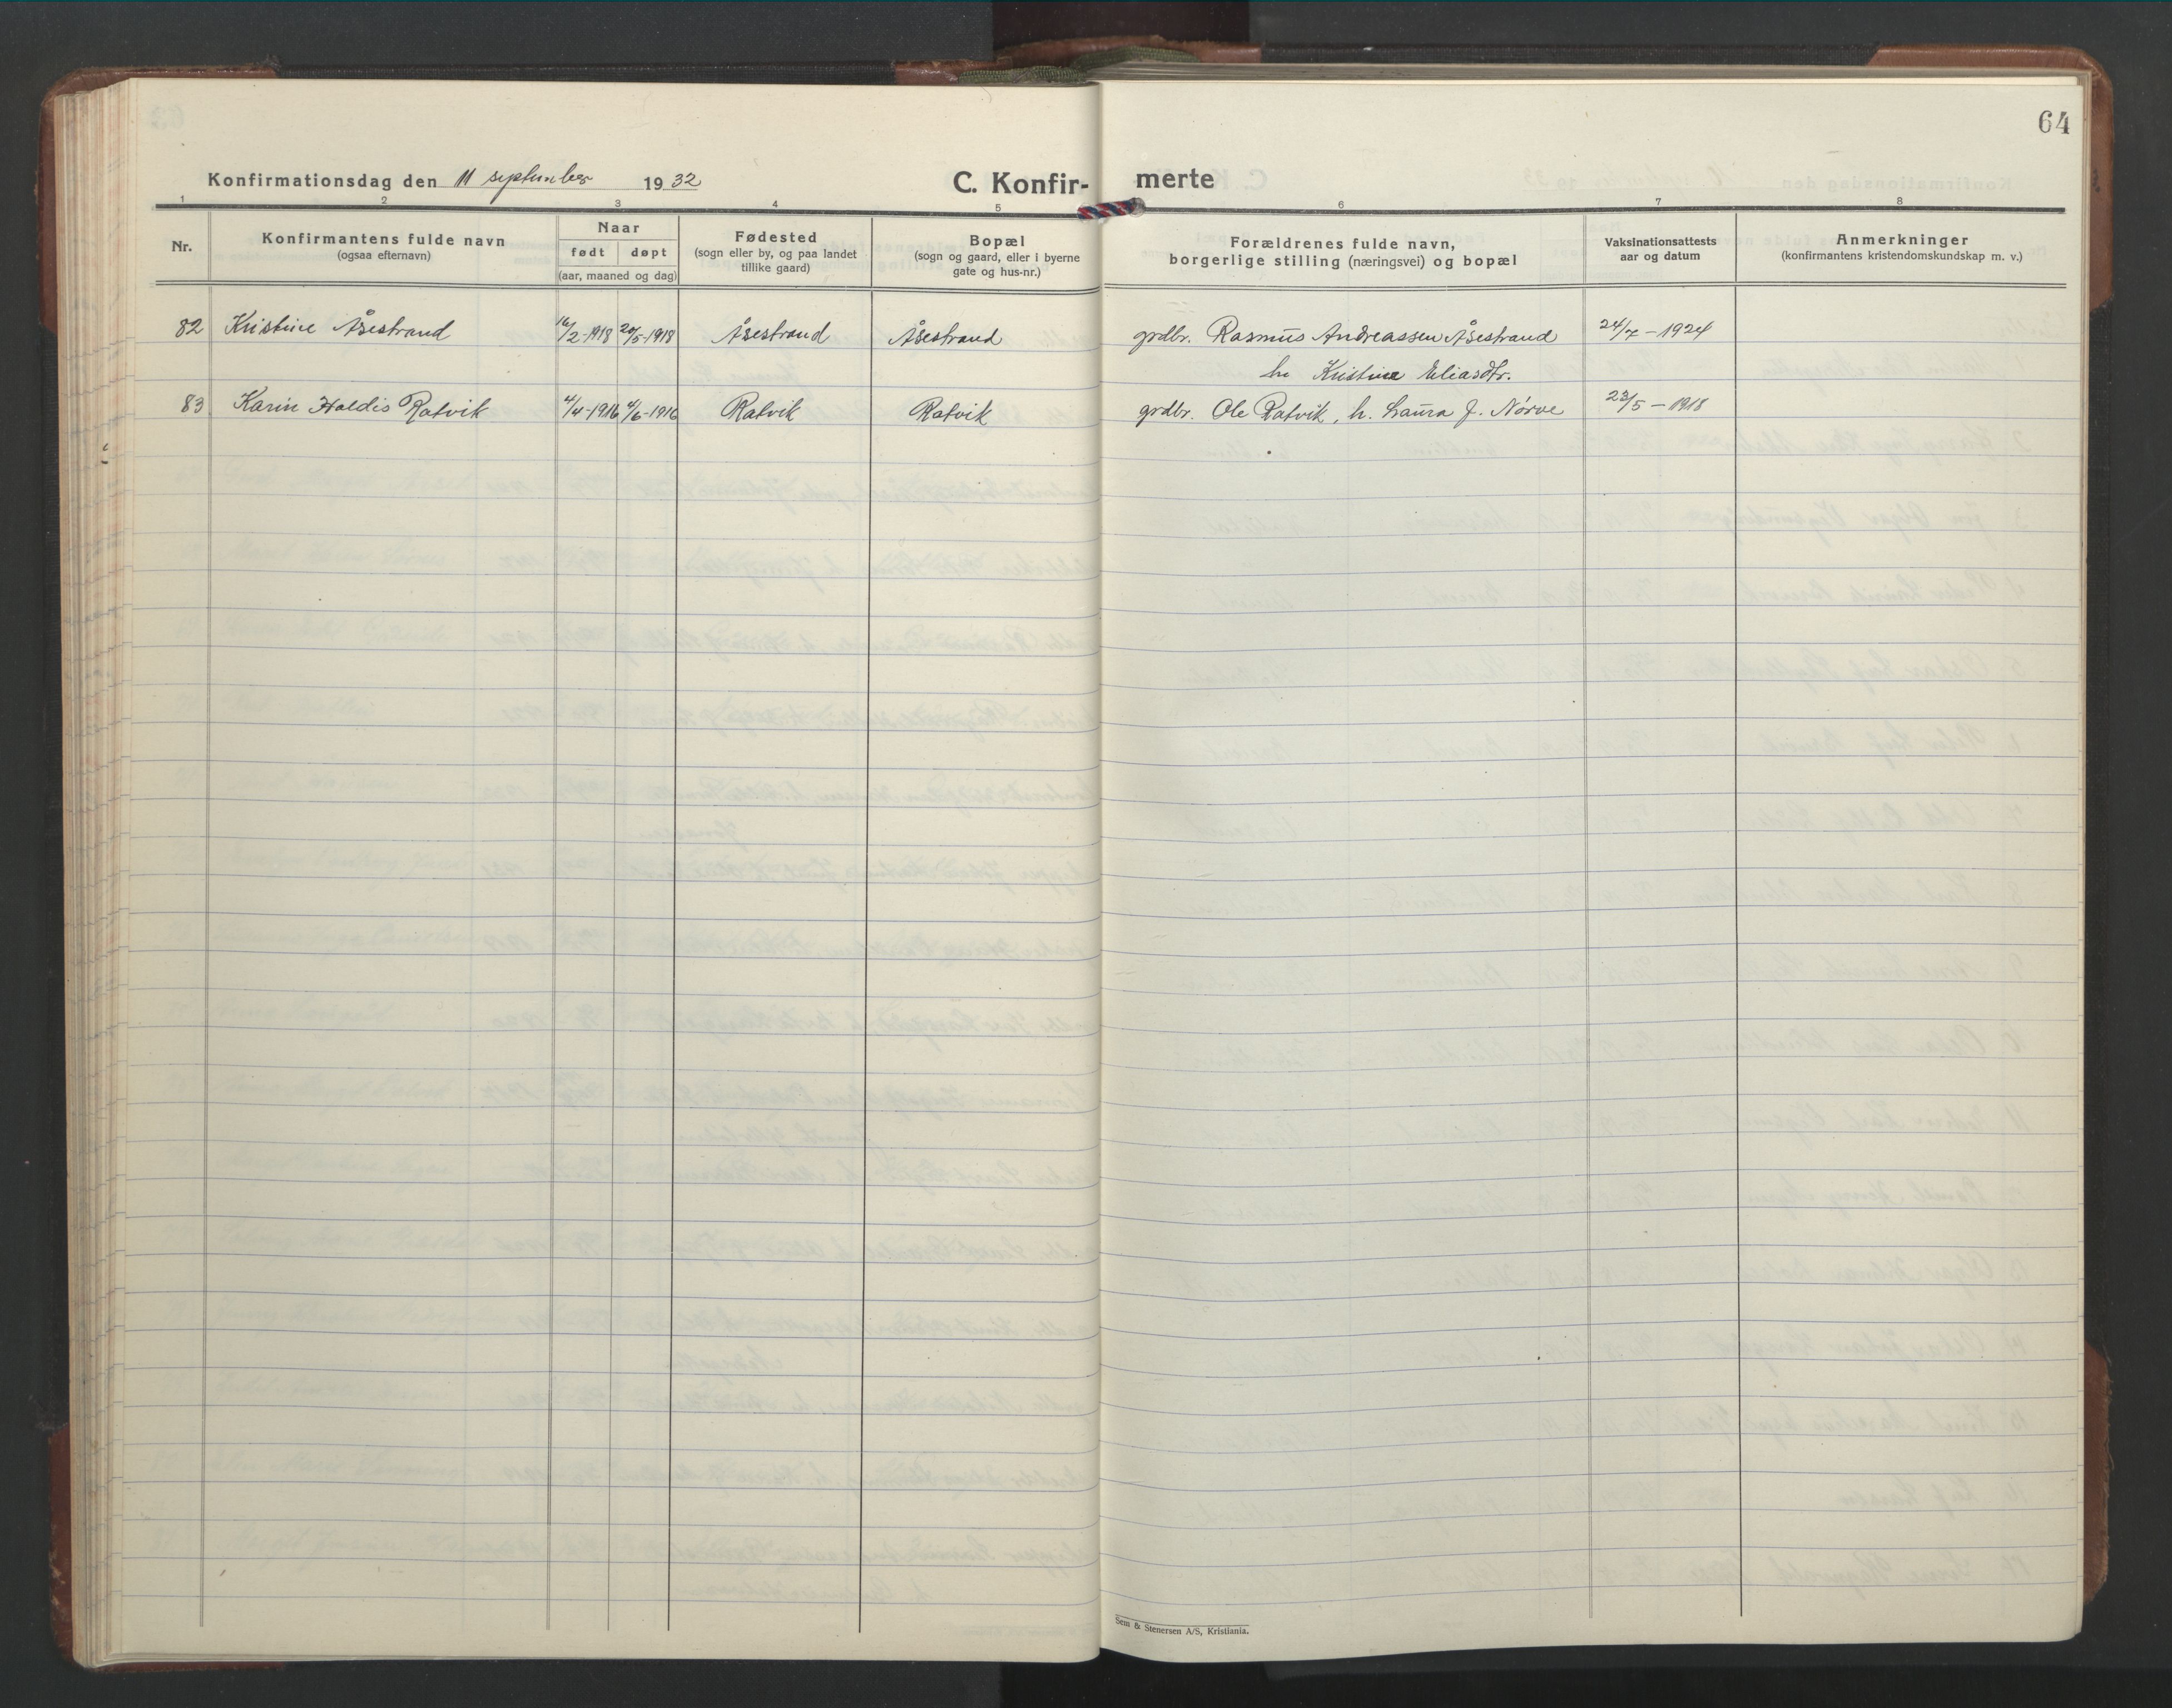 64
Konfirmationsdag den 11 september 1932
C. Konfir- merte
1 2 3 4 5 6 7 8
Nr.
Konfirmantens fulde navn
(ogsaa efternavn)
Naar
født døpt
(aar, maaned og dag)
Fødested
(sogn eller by, og paa landet
tillike gaard)
Bopæl
(sogn og gaard, eller i byerne
gate og hus-nr.)
Forældrenes fulde navn,
borgerlige stilling (næringsvei) og bopæl
Vaksinationsattests
aar og datum
Anmerkninger
(konfirmantens kristendomskundskap m. v.)
82 Kristine Åsestrand 16/2-1918 20/5-1918 Åsestrand Åsestrand grdbr. Rasmus Andreassen Åsestrand 24/7-1924
h. Kristine Eliasdtr.
83 Karin Haldis Ratvik 4/4-1916 4/6-1916 Ratvik Ratvik grdbr. Ole Ratvik, h. Laura J. Nørve 23/5-1918
Sem & Stenersen A/S, Kristiania.